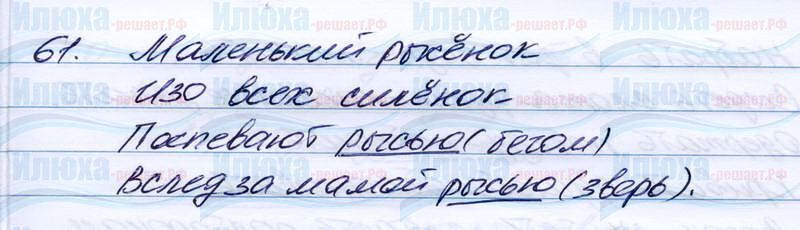 61. Маленький рысёнок
Изо всех силёнок
Поспевают рысью (бегом)
Вслед за мамой рысью (зверь).